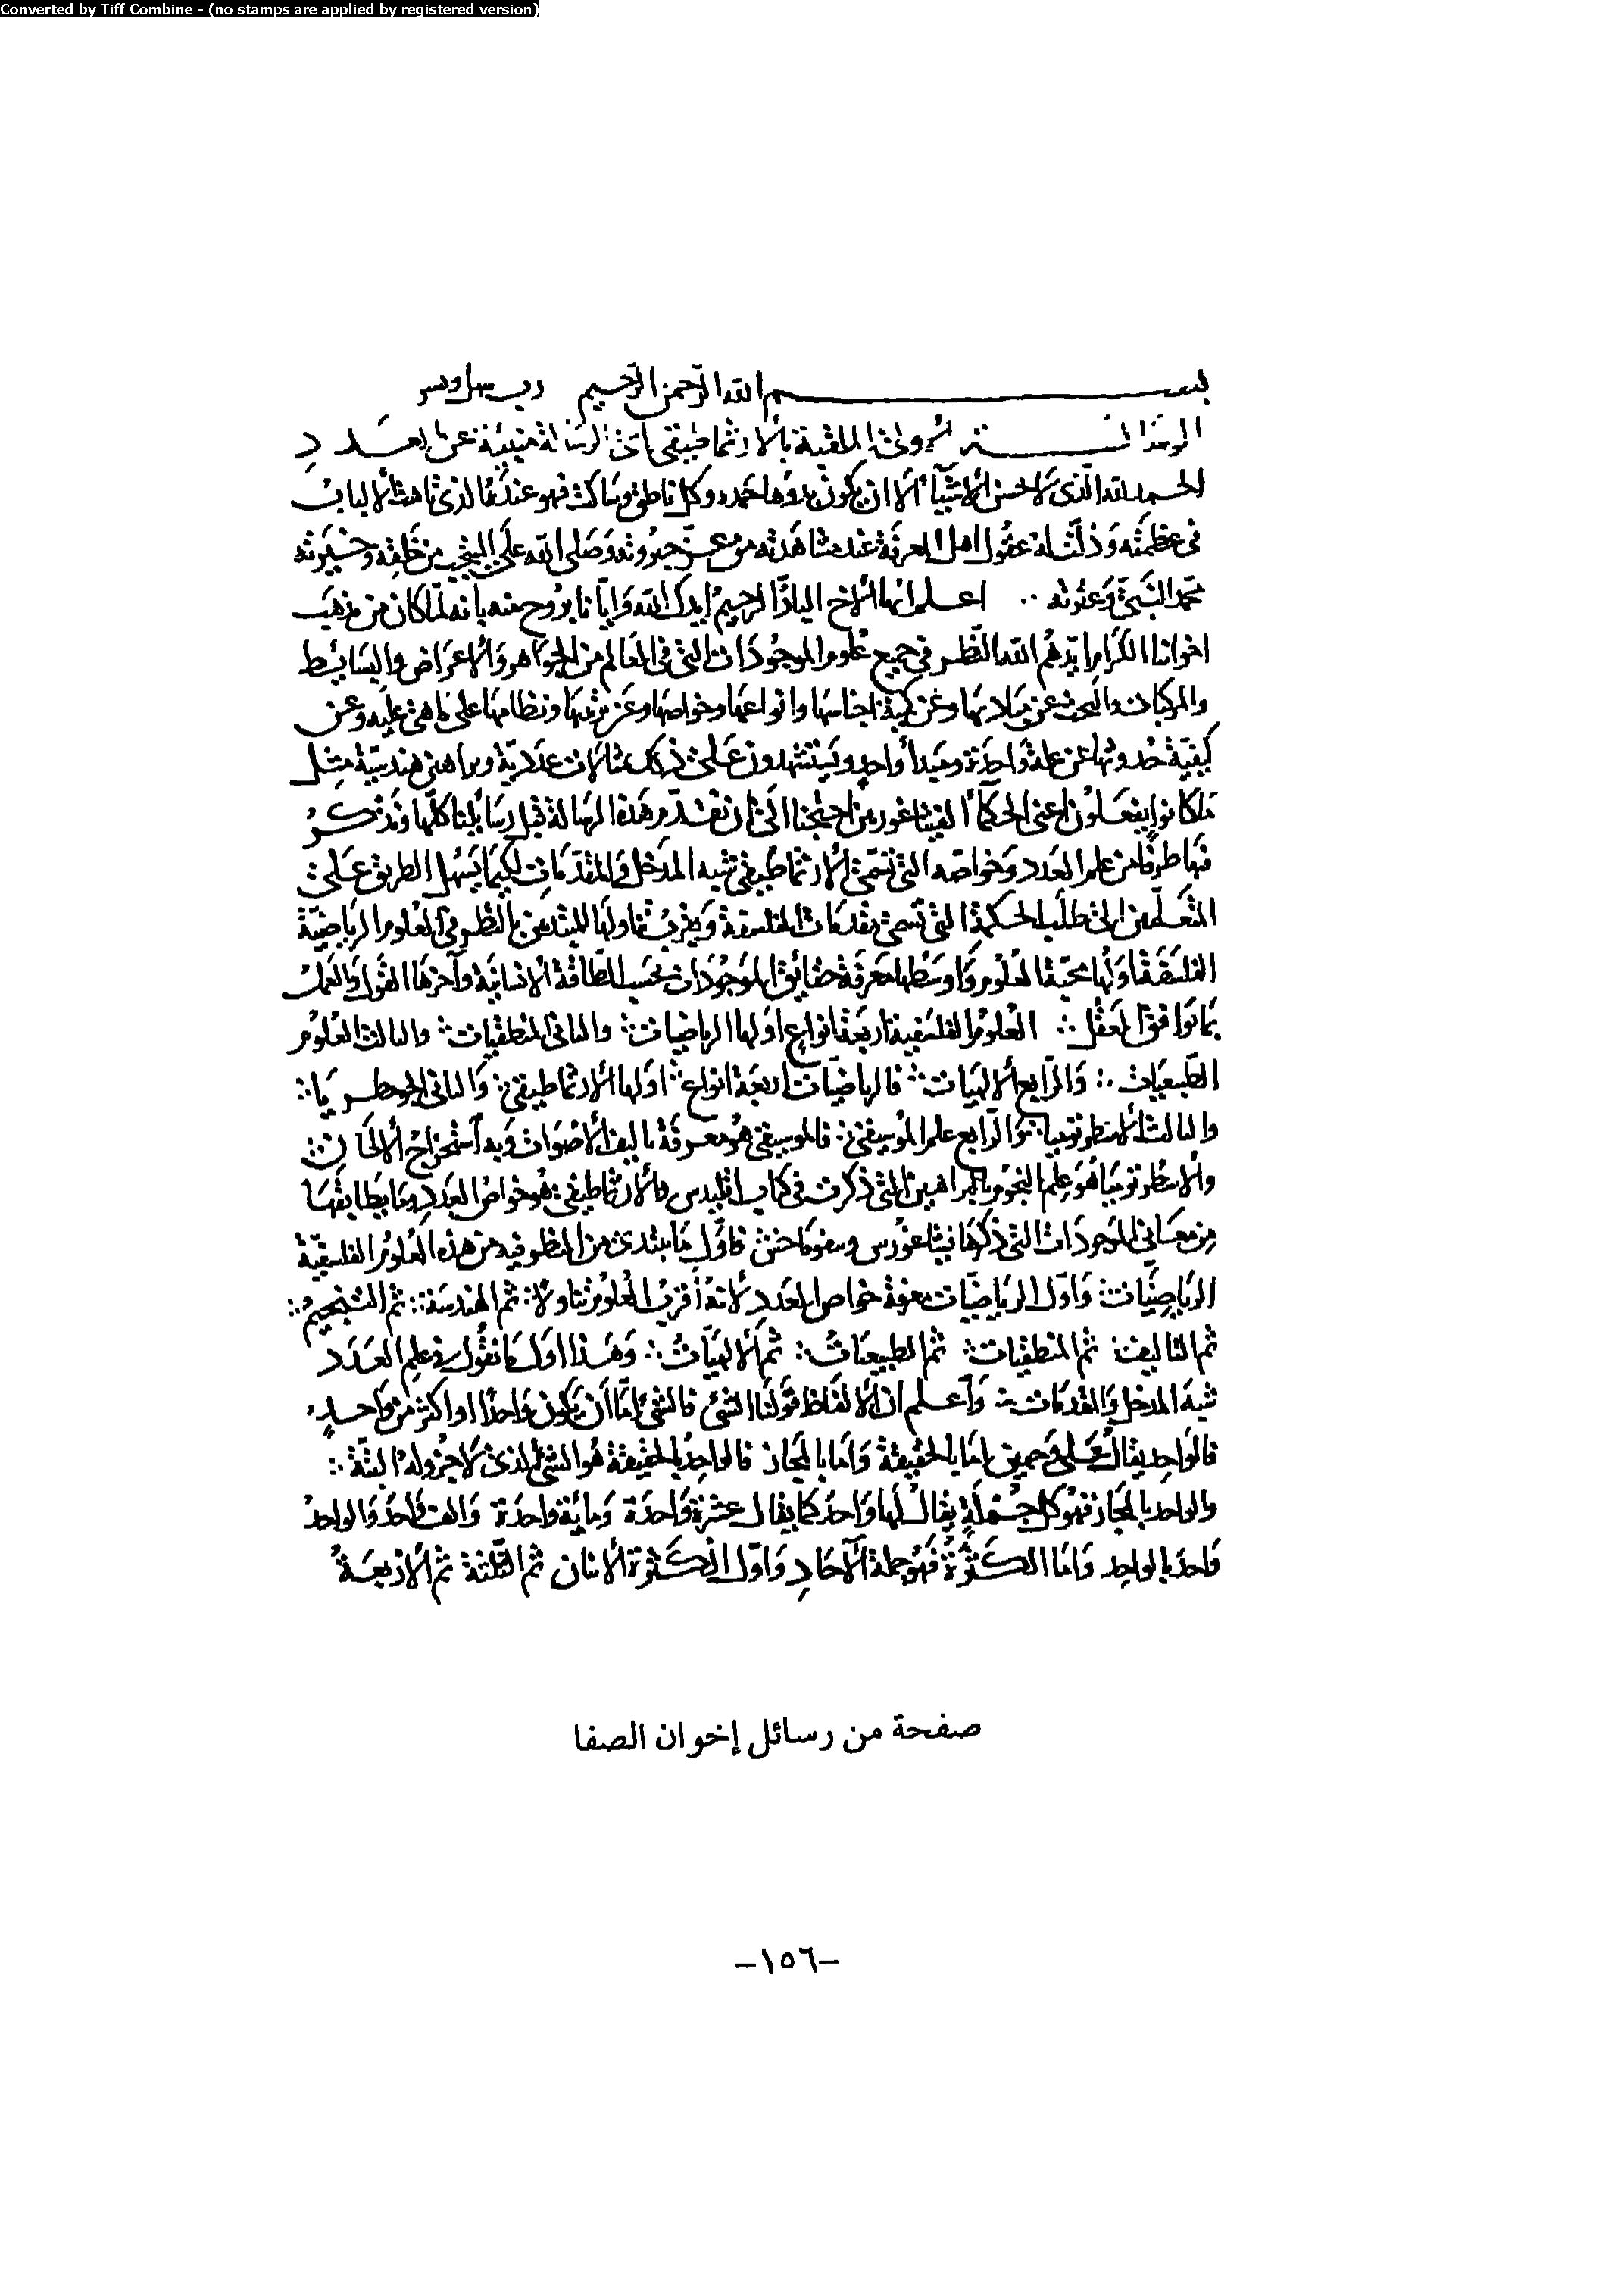 Converted by Tiff Combine - (no stamps are applied by registered version)
بسم الله الرحمن الرحيم رب سهل ويسر
الملقبة بالارثماطيقى الرسالة منبئة عن العدد
الحمد لله الذى لا احسن الاشيآء الا ان يكون بدوها حمده وكل ناطق وساكت فهو عنده الذى تاهت الالباب
فى عظمته وذلت له عقول اهل المعرفة عند مشاهدته من عز جبروته وصلى الله على من خلقه وخيرته
محمد النبى وعترته ∴ اعلم ايها الاخ البار الرحيم ايدك الله وايانا بروح منه بانه لما كان من مذهب
اخواننا الكرام ايدهم الله النظر فى جميع علوم الموجودات التى فى العالم من الجواهر والاعراض والبسائط
والمركبات والبحث عن مباديها وعن كمية اجناسها وانواعها وخواصها وعن ترتيبها ونظامها على ما هى عليه وعن
كيفية حدوثها عن علة واحدة ومبدأ واحد ويستشهدون على ذلك بمثالات عددية وبراهين هندسية مثل
ما كانوا يفعلون اعنى الحكمآء احتجنا الى ان نقدم هذه الرسالة قبل رسايلنا كلها ونذكر
فيها طرفا من علم العدد وخواصه التى تسمى الارثماطيقى شبه المدخل والمقدمات لكيما يسهل الطريق على
المتعلمين الى طلب الحكمة التى تسمى الفلسفة ويقرب تناولها للمبتدين بالنظر فى العلوم الرياضية
الفلسفة اولها محبة العلوم واوسطها معرفة حقائق الموجودات بحسب الطاقة الانسانية وآخرها القول والعمل
بما توافق العقل ∴ العلوم الفلسفية اربعة انواع اولها الرياضيات ∴ والثانى المنطقيات ∴ والثالث العلوم
الطبيعيات ∴ والرابع الالهيات ∴ فالرياضيات اربعة انواع ∴ اولها الارثماطيقى ∴ والثانى الجومطريا ∴
والثالث الاسطرنوميا ∴ والرابع علم الموسيقى ∴ فالموسيقى هو معرفة تاليف الاصوات وبه استخراج الالحان ∴
والاسطرنوميا هو علم النجوم بالبراهين التى ذكرت فى كتاب اقليدس والارثماطيقى هو خواص العدد وما يطابقها
من معانى الموجودات التى ذكرها فيثاغورس فاول ما يبتدى من النظر فيه من هذه العلوم الفلسفية
الرياضيات ∴ واول الرياضيات معرفة خواص العدد لانه اقرب العلوم تناولا ∴ ثم الهندسة ∴ ثم التنجيم ∴
ثم التاليف ∴ ثم المنطقيات ∴ ثم الطبيعيات ∴ ثم الالهيات ∴ وهذا اول ما نقول فى علم العدد
شبه المدخل والمقدمات ∴ واعلم ان الالفاظ قولنا الشئ فالشئ اما ان يكون واحدا او اكثر من واحد
فالواحد يقال على وجهين اما بالحقيقة واما بالمجاز فالواحد بالحقيقة هو الشئ الذى لا جزو له البتة ∴
والواحد بالمجاز فهو كل جملة يقال لها واحد كما يقال عشرة واحدة ومائة واحدة والف واحد والواحد
واحد بالواحد واما الكثرة فهو جملة الآحاد واول الكثرة الاثنان ثم الثلثة ثم الاربعة
صفحة من رسائل إخوان الصفا
–١٥٦–